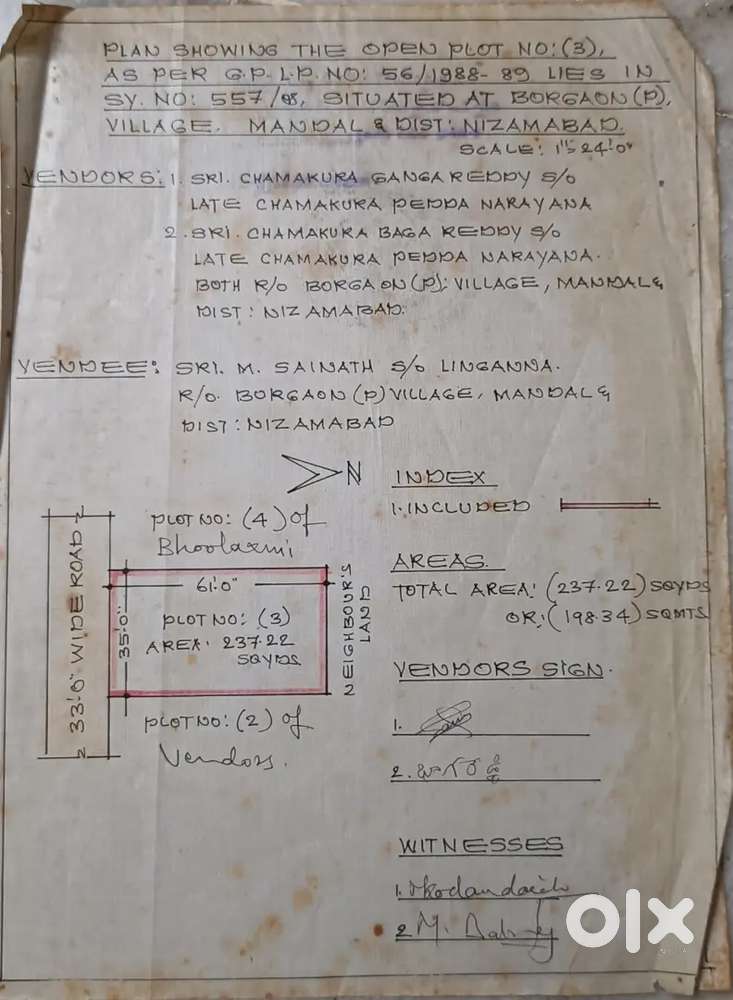 PLAN SHOWING THE OPEN PLOT NO: (3),
AS PER G.P. L.P. NO: 56/1988-89 LIES IN
SY. NO: 557/, SITUATED AT BORGAON (P),
VILLAGE. MANDAL & DIST: NIZAMABAD.
SCALE: 1"=24'.0"
VENDORS: 1. SRI. CHAMAKURA GANGA REDDY S/O
LATE CHAMAKURA PEDDA NARAYANA
2. SRI. CHAMAKURA BAGA REDDY S/O
LATE CHAMAKURA PEDDA NARAYANA.
BOTH R/O BORGAON (P): VILLAGE, MANDAL &
DIST: NIZAMABAD.
VENDEE: SRI. M. SAINATH S/O LINGANNA.
R/O. BORGAON (P) VILLAGE, MANDAL &
DIST: NIZAMABAD
N
PLOT NO: (4) of
Bhoolaxmi
33'.0" WIDE ROAD
61'.0"
35'.0"
PLOT NO: (3)
AREA: 237.22
SQYDS
NEIGHBOUR'S
LAND
PLOT NO: (2) of
Vendors.
INDEX
1. INCLUDED
AREAS.
TOTAL AREA: (237.22) SQYDS
OR: (198.34) SQMTS
VENDORS SIGN.
1.
2.
WITNESSES
1.
2. M.
olx